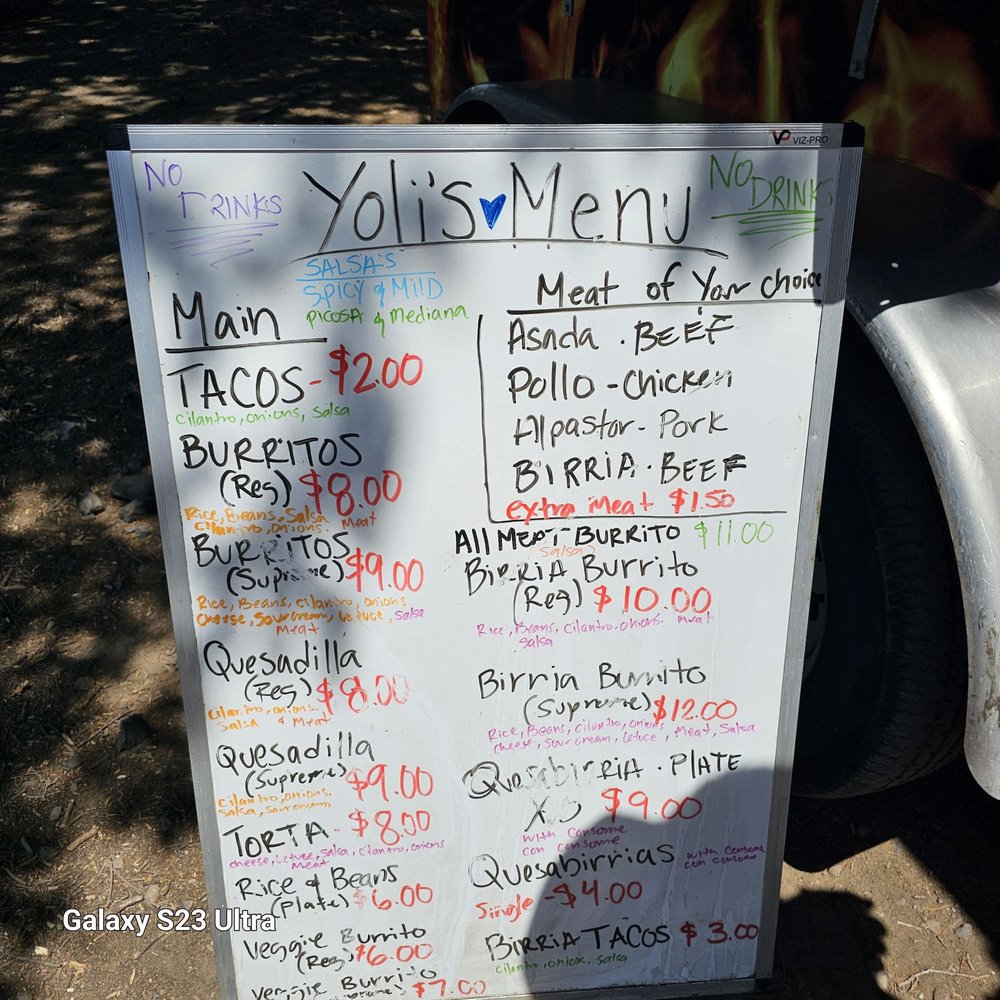 VP VIZ-PRO
NO DRINKS
Yoli's Menu
NO DRINKS
SALSA'S
Spicy & Mild
Picosa & Mediana
Main
TACOS - $2.00
cilantro, onions, salsa
BURRITOS
(Reg) $8.00
Rice, Beans, Salsa
cilantro, onions, Meat
BURRITOS
(Supreme) $9.00
Rice, Beans, cilantro, onions
cheese, sour cream, letuce, salsa
Meat
Quesadilla
(Reg) $8.00
cilantro, onions.
Salsa & Meat
Quesadilla
(Supreme) $9.00
cilantro, onions.
Salsa, sourcream
TORTA - $8.00
cheese, letuce, salsa, cilantro, onions
Meat
Rice & Beans
(Plate) $6.00
Veggie Burrito
(Reg) $6.00
Veggie Burrito
$7.00
Meat of Your choice
Asada . BEEF
Pollo - Chicken
Alpastor - Pork
BIRRIA . BEEF
extra meat $1.50
All MEAT BURRITO $11.00
(salsa)
BIRRIA Burrito
(Reg) $10.00
Rice, Beans, cilantro. onions. meat
Salsa
Birria Burrito
(Supreme) $12.00
Rice, Beans, cilantro, onions
cheese, sour cream, letuce, Meat, Salsa
QuesaBIRRIA . PLATE
X3 $9.00
with consome
con consome
Quesabirrias with consome
con consome
Single - $4.00
BIRRIA TACOS $3.00
cilantro, onion, salsa
Galaxy S23 Ultra